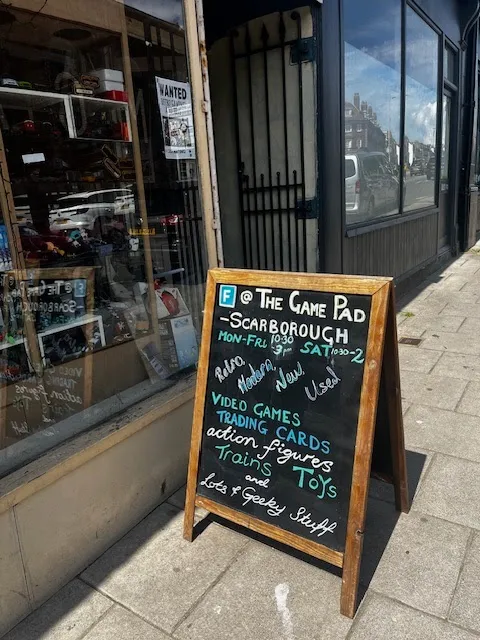 WANTED
F @ THE GAME PAD
-SCARBOROUGH
MON-FRI 10:30 3pm SAT 10:30-2
Retro, Modern, New, Used
VIDEO GAMES
TRADING CARDS
action figures
Trains TOYS
and
Lots of Geeky Stuff